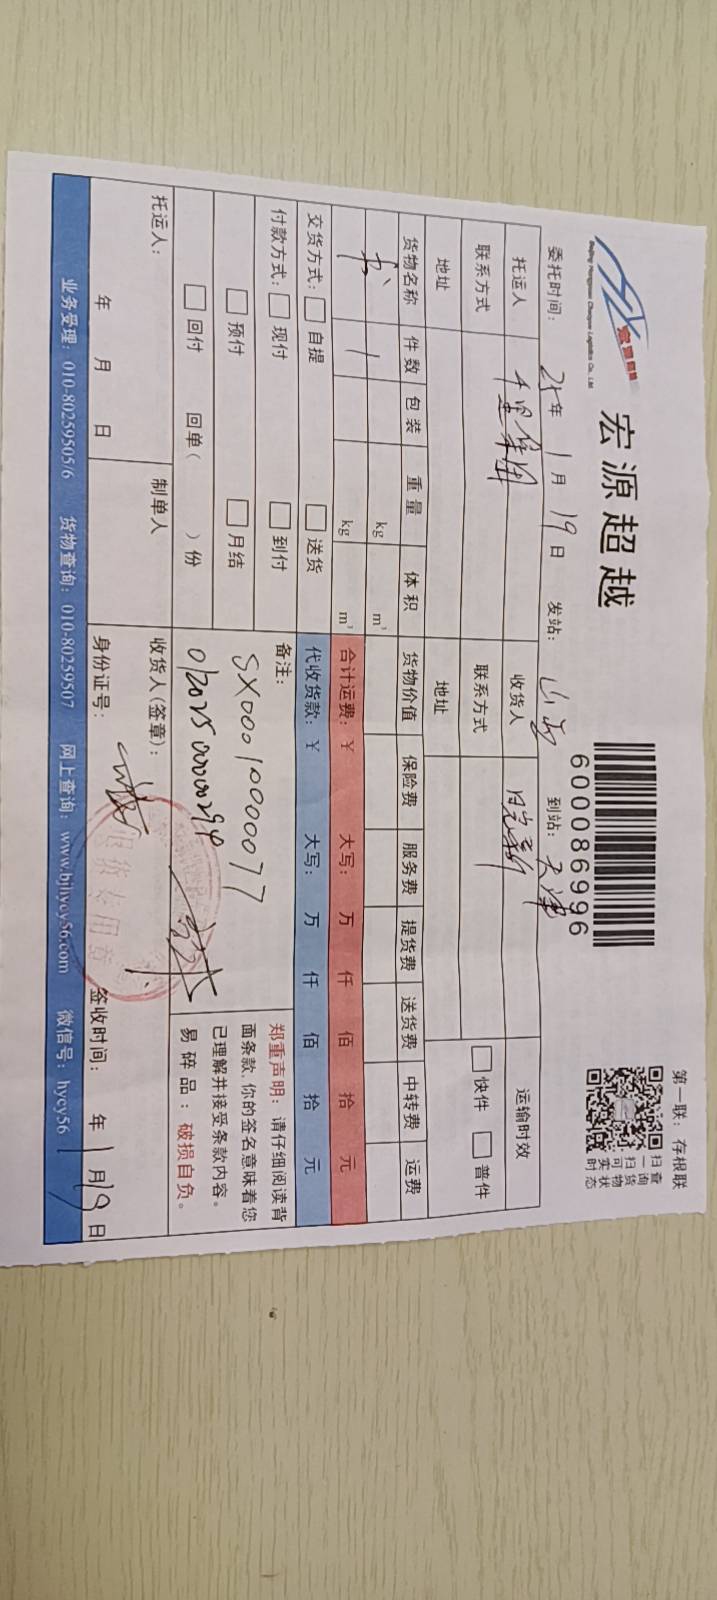 宏源超越
Beijing Hongyuan Chaoyue Logistics Co., Ltd
宏源超越
600086996
第一联：存根联
扫一扫可实
查询货物状态
委托时间： 25年 1月 19日 发站： 山西 到站： 天津
托运人 收货人 运输时效
联系方式 联系方式 快件 普件
地址 地址
货物名称 件数 包装 重量 体积 货物价值 保险费 服务费 提货费 送货费 中转费 运费
书 1 kg m³
kg m³ 合计运费：￥ 大写： 万 仟 佰 拾 元
交货方式： 自提 送货 代收货款：￥ 大写： 万 仟 佰 拾 元
付款方式： 现付 到付 备注：
预付 月结 SX00010000077
回付 回单（ ）份 012025000000294
郑重声明：请仔细阅读背
面条款,你的签名意味着您
已理解并接受条款内容。
易碎品：破损自负。
托运人： 制单人 收货人(签章)：
年 月 日 身份证号： 签收时间： 年 1月19日
业务受理：010-80259505/6 货物查询：010-80259507 网上查询：www.bjhycy56.com 微信号：hycy56